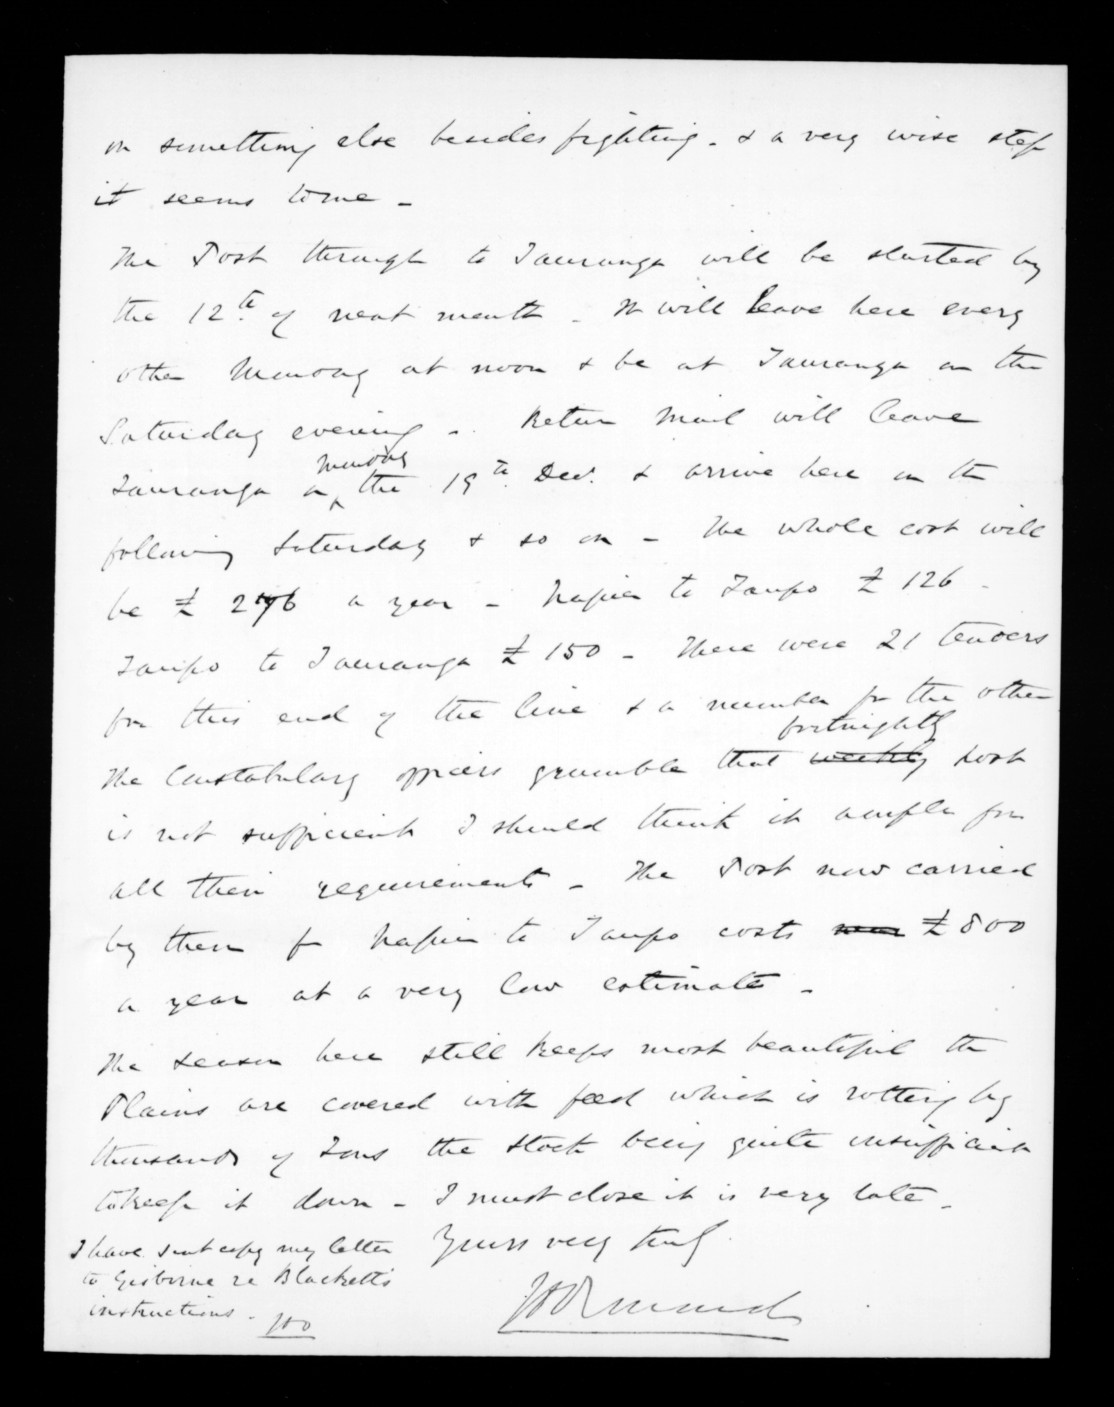 on something else besides fighting - & a very wise step
it seems to me -
The Post through to Tauranga will be started by
the 12th of next month - It will leave here every
other Monday at noon & be at Tauranga on the
Saturday evening - Return Mail will leave
Monday
Tauranga on the 19th Decr. & arrive here on the
following Saturday & so on - The whole cost will
be £ 276 a year - Napier to Taupo £ 126 -
Taupo to Tauranga £ 150 - There were 21 tenders
for this end of the line & a number for the other
fortnightly
The Constabulary officers grumble that weekly post
is not sufficient I should think it ample for
all their requirements - The Post now carried
by them fr Napier to Taupo costs now £ 800
a year at a very low estimate -
The season here still keeps most beautiful the
Plains are covered with feed which is rotting by
thousands of Tons the stock being quite insufficient
to keep it down - I must close it is very late -
Yours very truly
JDOrmond
I have sent copy my letter
to Gisborne re Blackett's
instructions - JDO